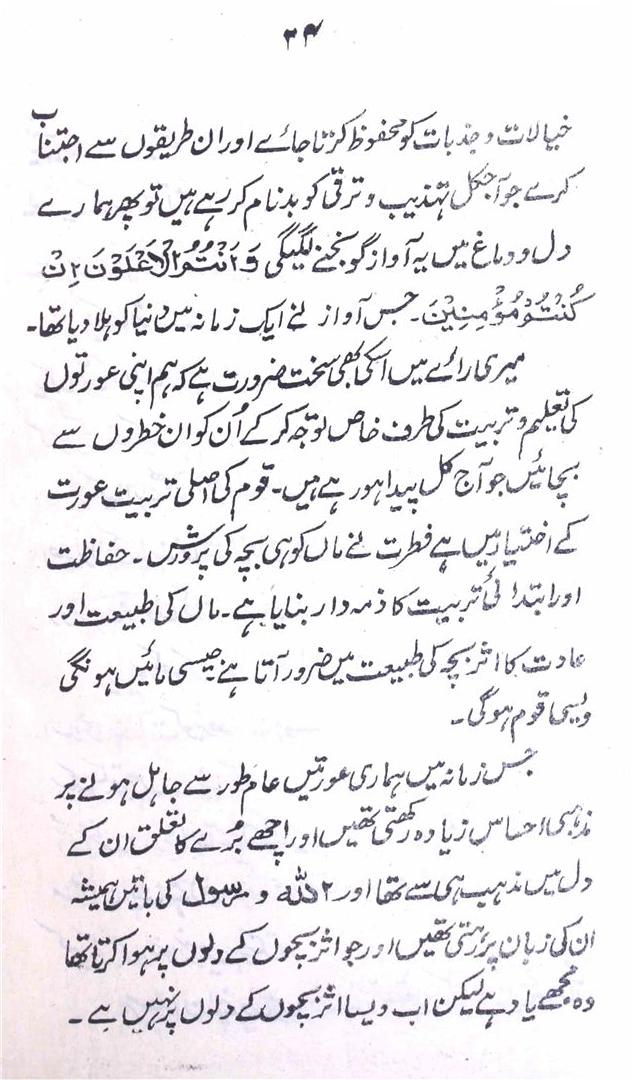 ۳۴
خیالات و جذبات کو محفوظ کرتا جائے اور ان طریقوں سے اجتناب
کرے جو آجکل تہذیب و ترقی کو بدنام کر رہے ہیں تو پھر ہمارے
دل و دماغ میں یہ آواز گونجنے لگیگی وَاَنْتُمُ الْاَعْلَوْنَ اِنْ
كُنْتُمْ مُؤْمِنِيْنَ۔ جس آواز نے ایک زمانہ میں دنیا کو ہلا دیا تھا۔
میری رائے میں اسکی بھی سخت ضرورت ہے کہ ہم اپنی عورتوں
کی تعلیم و تربیت کی طرف خاص توجہ کر کے اُن کو ان خطروں سے
بچائیں جو آج کل پیدا ہو رہے ہیں۔ قوم کی اصلی تربیت عورت
کے اختیار میں ہے فطرت نے ماں کو ہی بچہ کی پرورش۔ حفاظت
اور ابتدائی تربیت کا ذمہ دار بنایا ہے۔ ماں کی طبیعت اور
عادت کا اثر بچہ کی طبیعت میں ضرور آتا ہے جیسی مائیں ہونگی
ویسی قوم ہوگی۔
جس زمانہ میں ہماری عورتیں عام طور سے جاہل ہونے پر
مذہبی احساس زیادہ رکھتی تھیں اور اچھے بُرے کا تعلق ان کے
دل میں مذہب ہی سے تھا اور اللہ و رسول کی باتیں ہمیشہ
ان کی زبان پر رہتی تھیں اور جو اثر بچوں کے دلوں پر ہوا کرتا تھا
وہ مجھے یاد ہے لیکن اب ویسا اثر بچوں کے دلوں پر نہیں ہے۔